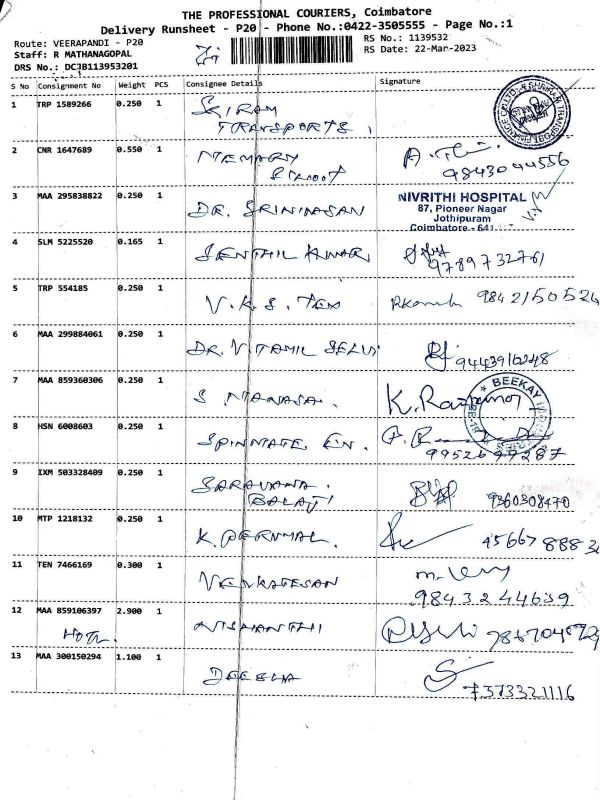 THE PROFESSIONAL COURIERS, Coimbatore
Delivery Runsheet - P20 - Phone No.:0422-3505555 - Page No.:1
Route: VEERAPANDI - P20
Staff: R MATHANAGOPAL
DRS No.: DCJB113953201
RS No.: 1139532
RS Date: 22-Mar-2023
S No Consignment No Weight PCS Consignee Details Signature
1 TRP 1589266 0.250 1 SRIRAM
TRANSPORTS.
2 CNR 1647689 0.550 1 MEMARY
9843044556
3 MAA 295838822 0.250 1 DR. SRINIVASAN
NIVRITHI HOSPITAL
87, Pioneer Nagar
Jothipuram
Coimbatore - 641
4 SLM 5225520 0.165 1 SENTHIL KUMAR
9789732761
5 TRP 554185 0.250 1 V.K.S. TEX 9842150524
6 MAA 299884061 0.250 1 DR. V. TAMIL SELVI
7 MAA 859360306 0.250 1 S MANASA.
BEEKAY
8 HSN 6008603 0.250 1 SPINMATE EN.
9952699287
9 IXM 503328409 0.250 1 SARAVANA
BALAJI 9360308470
10 MTP 1218132 0.250 1 K. PERUMAL.
11 TEN 7466169 0.300 1 VENKATESAN
9843244639
12 MAA 859106397 2.900 1 NISHANTHI
13 MAA 300150294 1.100 1 DEEBHA
7373321116